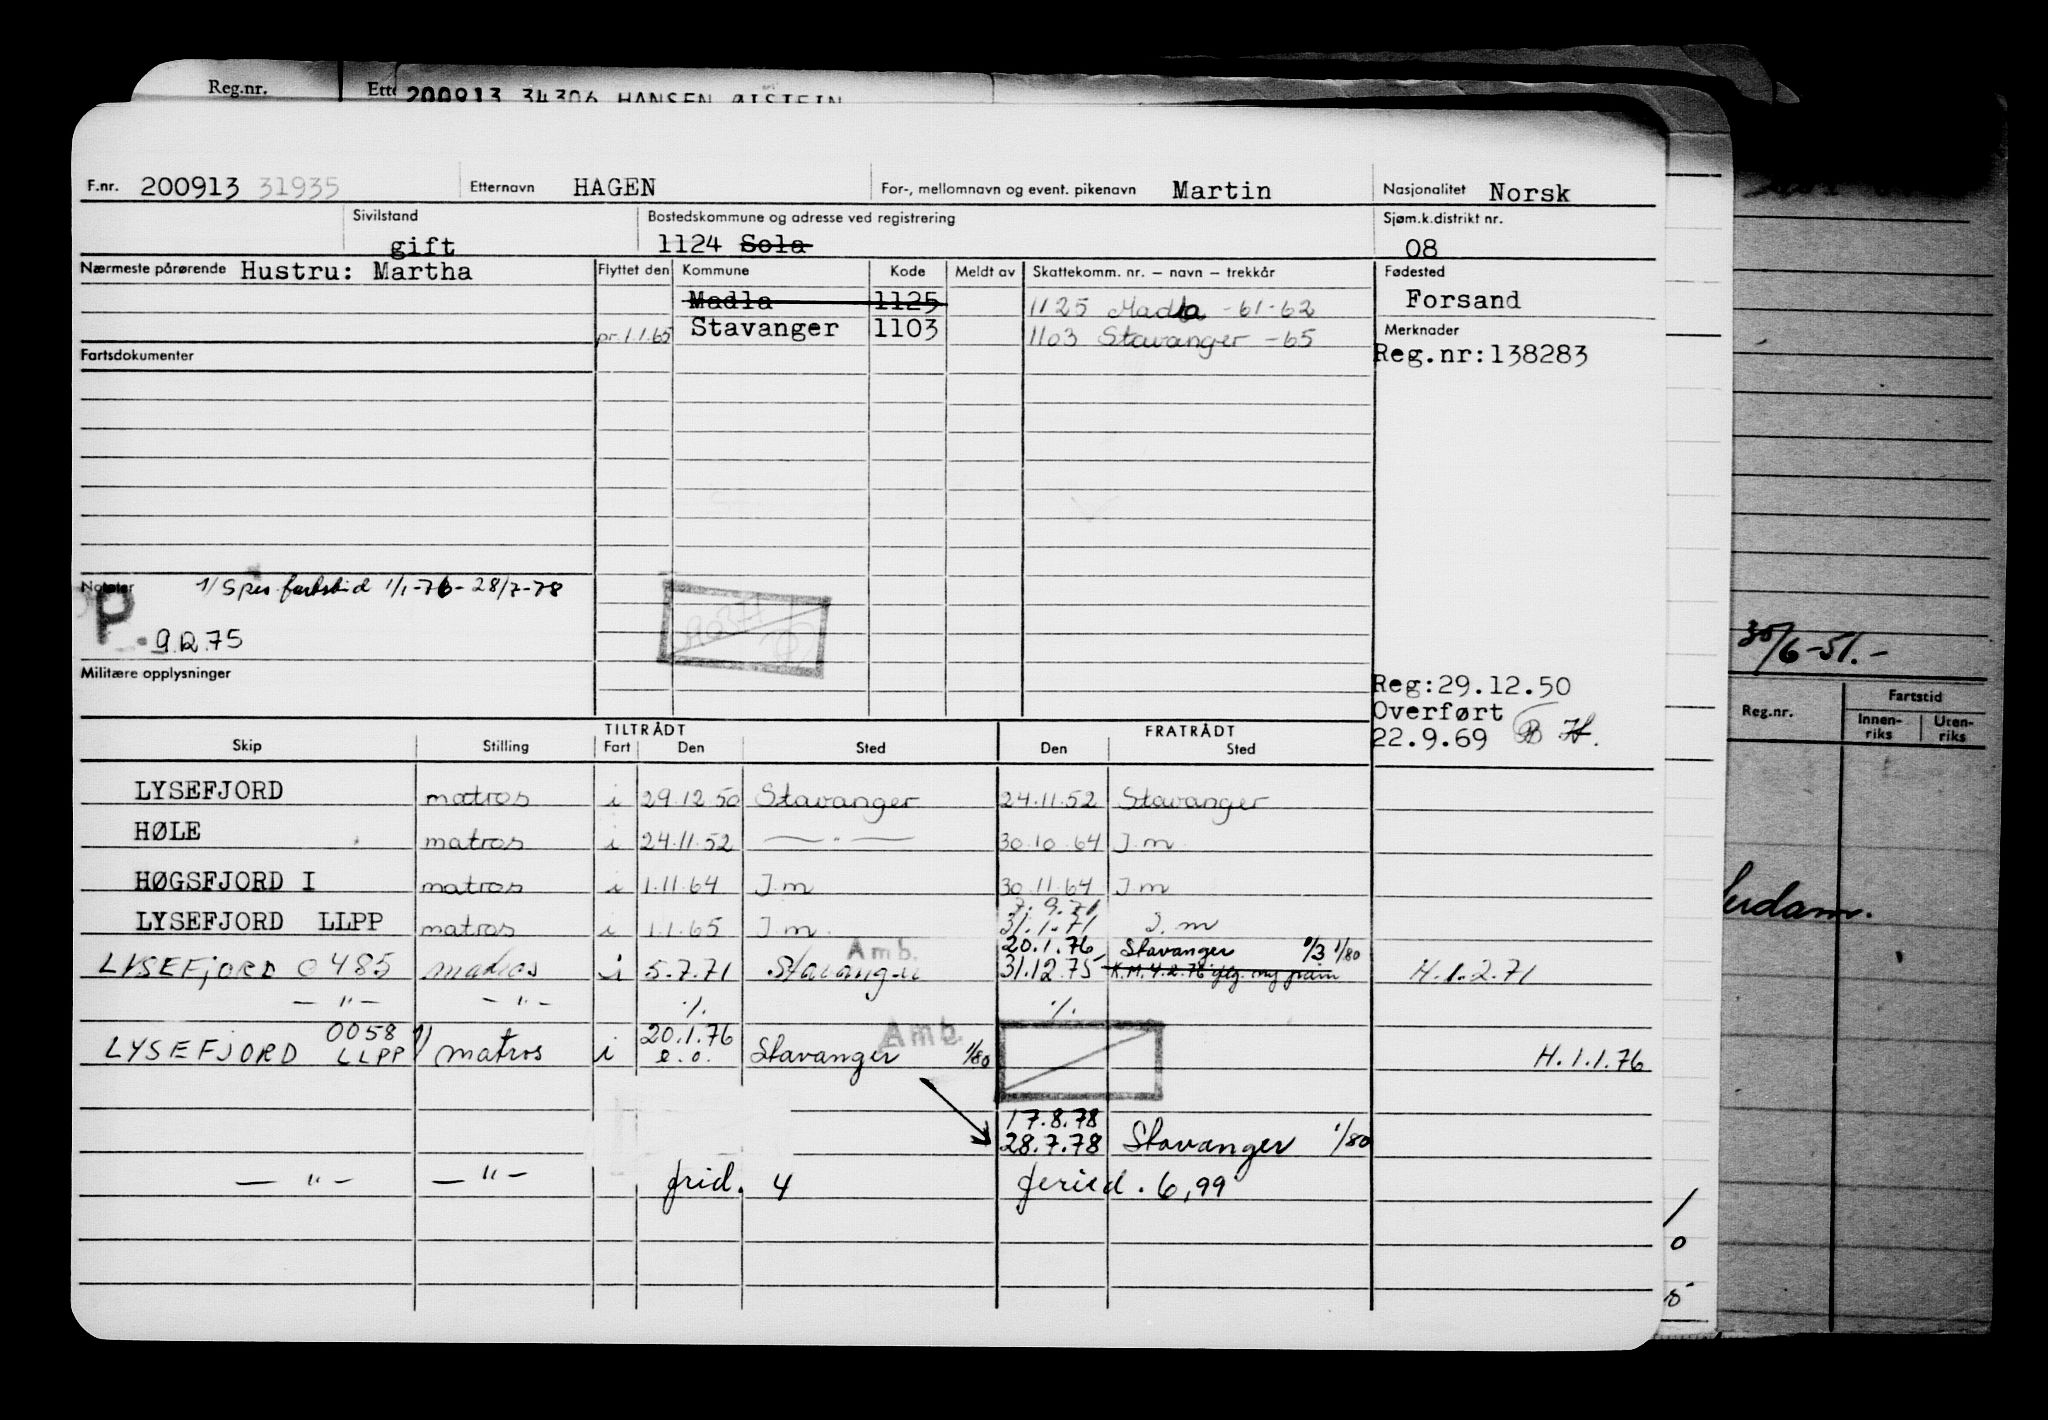 Reg.nr.
200913 34306 HANSEN ØISTEIN
F.nr. 200913 31935 Etternavn HAGEN For-, mellomnavn og event. pikenavn Martin Nasjonalitet Norsk
Sivilstand gift Bostedskommune og adresse ved registrering 1124 Sola Sjøm.k.distrikt nr. 08
Nærmeste pårørende Hustru: Martha Flyttet den Kommune Kode Meldt av Skattekomm. nr. – navn – trekkår Fødested
Madla 1125 1125 Madla -61-62 Forsand
pr. 1.1.65 Stavanger 1103 1103 Stavanger -65 Merknader
Fartsdokumenter Reg.nr:138283
Notater 1/ Spes fartstid 1/1-76- 28/7-78
P
9.12.75
Militære opplysninger
Reg:29.12.50
Overført
22.9.69 B H.
TILTRÅDT FRATRÅDT
Skip Stilling Fart Den Sted Den Sted
LYSEFJORD matros i 29.12.50 Stavanger 24.11.52 Stavanger
HØLE matros i 24.11.52 — " — 30.10.64 I.m
HØGSFJORD I matros i 1.11.64 I.m 30.11.64 I.m
7.9.71
LYSEFJORD LLPP matros i 1.1.65 I.m. 31.1.71 I.m
Amb. 20.1.76 Stavanger 1/3 1/80
LYSEFJORD 0485 matros i 5.7.71 Stavanger 31.12.75 K.M. 4.2.76 H.1.2.71
— " — — " — ·/. ·/.
0058 1/ 20.1.76 Amb.
LYSEFJORD LLPP matros i e.o. Stavanger 1/80 H.1.1.76
17.8.78
28.7.78 Stavanger 1/80
— " — — " — frid. 4 feried. 6,99
30/6-51.-
Reg.nr. Fartstid
Innenriks Utenriks